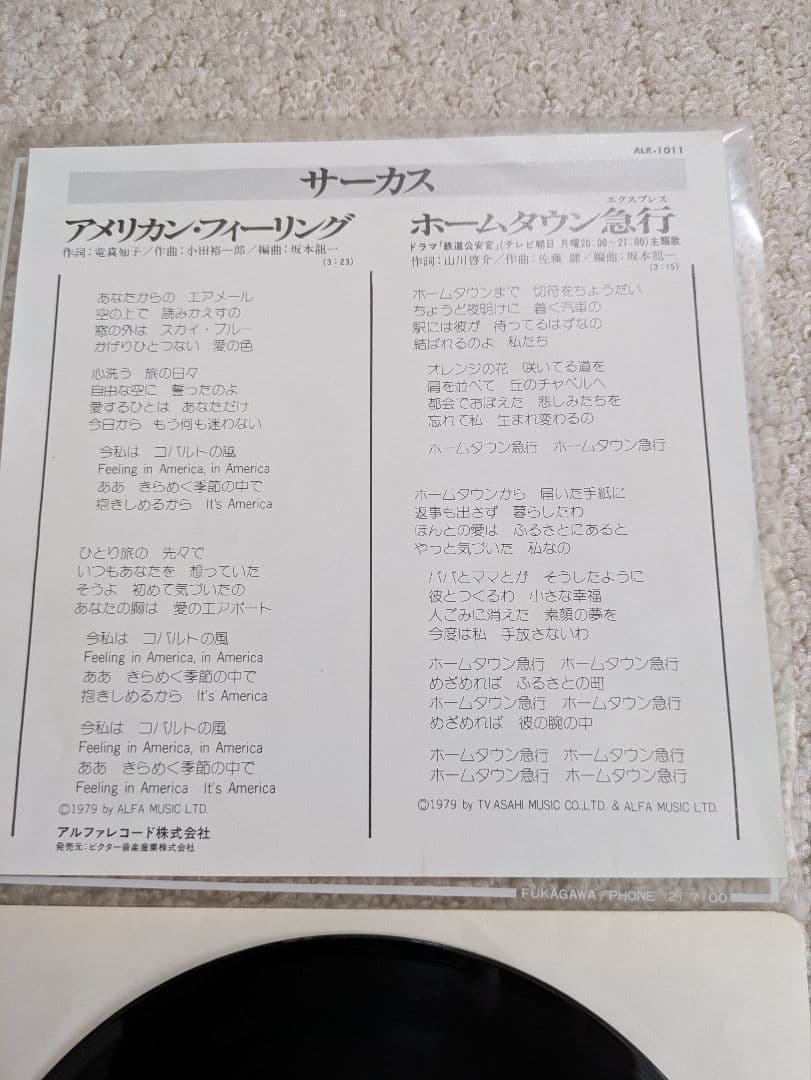 ALR-1011
サーカス
アメリカン・フィーリング
作詞：竜真知子／作曲：小田裕一郎／編曲：坂本龍一
(3：23)
あなたからの　エアメール
空の上で　読みかえすの
窓の外は　スカイ・ブルー
かげりひとつない　愛の色
心洗う　旅の日々
自由な空に　誓ったのよ
愛するひとは　あなただけ
今日から　もう何も迷わない
今私は　コバルトの風
Feeling in America, in America
ああ　きらめく季節の中で
抱きしめるから　It's America
ひとり旅の　先々で
いつもあなたを　想っていた
そうよ　初めて気づいたの
あなたの胸は　愛のエアポート
今私は　コバルトの風
Feeling in America, in America
ああ　きらめく季節の中で
抱きしめるから　It's America
今私は　コバルトの風
Feeling in America, in America
ああ　きらめく季節の中で
Feeling in America　It's America
©1979 by ALFA MUSIC LTD.
アルファレコード株式会社
発売元：ビクター音楽産業株式会社
エクスプレス
ホームタウン急行
ドラマ「鉄道公安官」(テレビ朝日 月曜20：00〜21：00)主題歌
作詞：山川啓介／作曲：佐藤 健／編曲：坂本龍一
(3：15)
ホームタウンまで　切符をちょうだい
ちょうど夜明けに　着く汽車の
駅には彼が　待ってるはずなの
結ばれるのよ　私たち
オレンジの花　咲いてる道を
肩を並べて　丘のチャペルへ
都会でおぼえた　悲しみたちを
忘れて私　生まれ変わるの
ホームタウン急行　ホームタウン急行
ホームタウンから　届いた手紙に
返事も出さず　暮らしたわ
ほんとの愛は　ふるさとにあると
やっと気づいた　私なの
パパとママとが　そうしたように
彼とつくるわ　小さな幸福
人ごみに消えた　素顔の夢を
今度は私　手放さないわ
ホームタウン急行　ホームタウン急行
めざめれば　ふるさとの町
ホームタウン急行　ホームタウン急行
めざめれば　彼の腕の中
ホームタウン急行　ホームタウン急行
ホームタウン急行　ホームタウン急行
©1979 by TV.ASAHI MUSIC CO.,LTD. & ALFA MUSIC LTD.
FUKAGAWA／PHONE (2) 7100